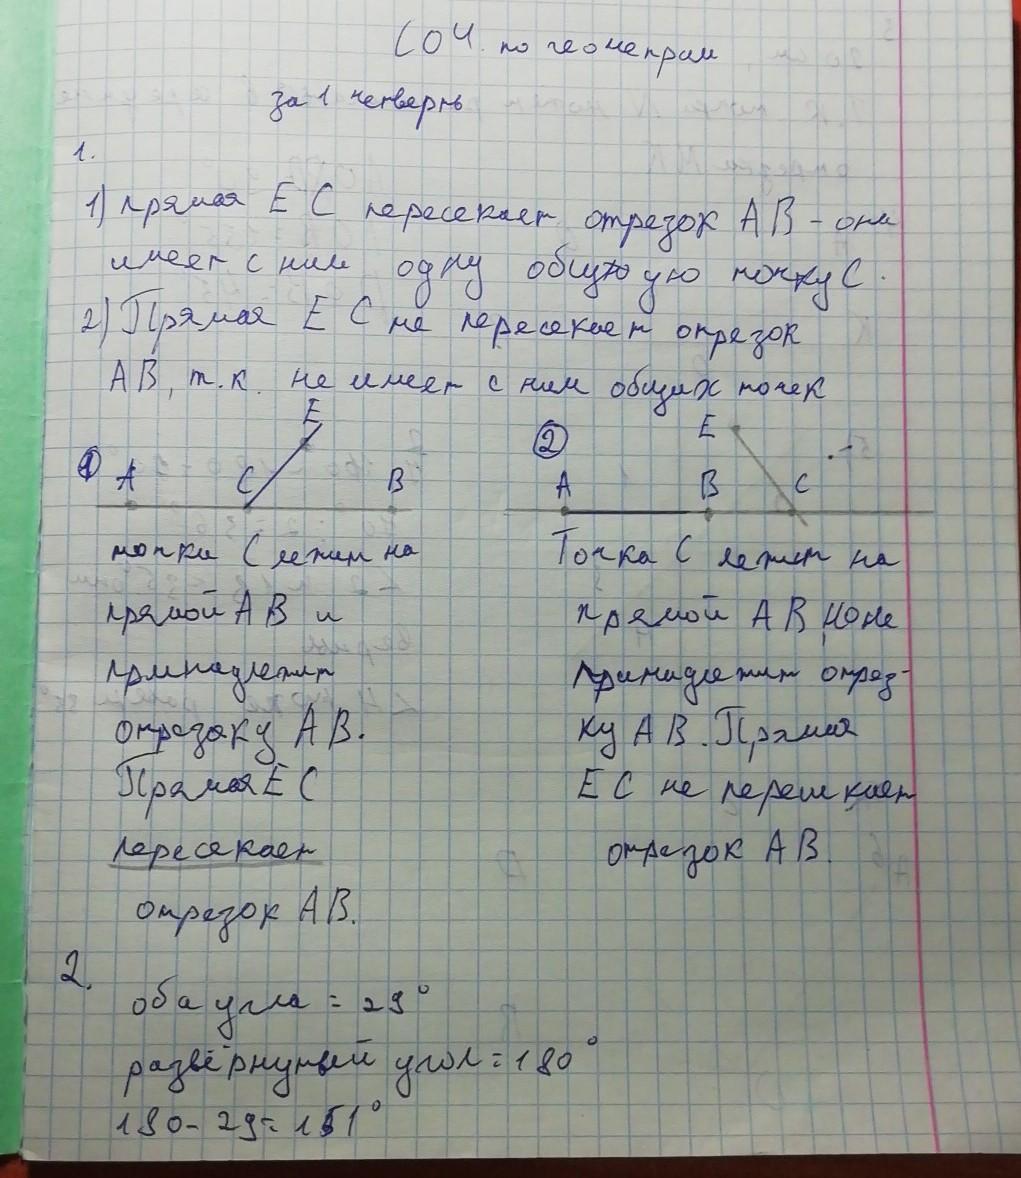 СОЧ. по геометрии
за 1 четверть
1.
1) прямая ЕС пересекает отрезок АВ - они
имеет с ним одну общую точку С.
2) Прямая ЕС не пересекает отрезок
АВ, т.к. не имеет с ним общих точек
1 А С Е В
2 А В Е С
точки С лежит на
прямой АВ и
принадлежит
отрезоку АВ.
Прямая ЕС
пересекает
отрезок АВ.
Точка С лежит на
прямой АВ но не
принадлежит отрез-
ку АВ. Прямая
ЕС не пересекает
отрезок АВ.
2.
оба угла = 29°
развёрнутый угол = 180°
180 - 29 = 151°